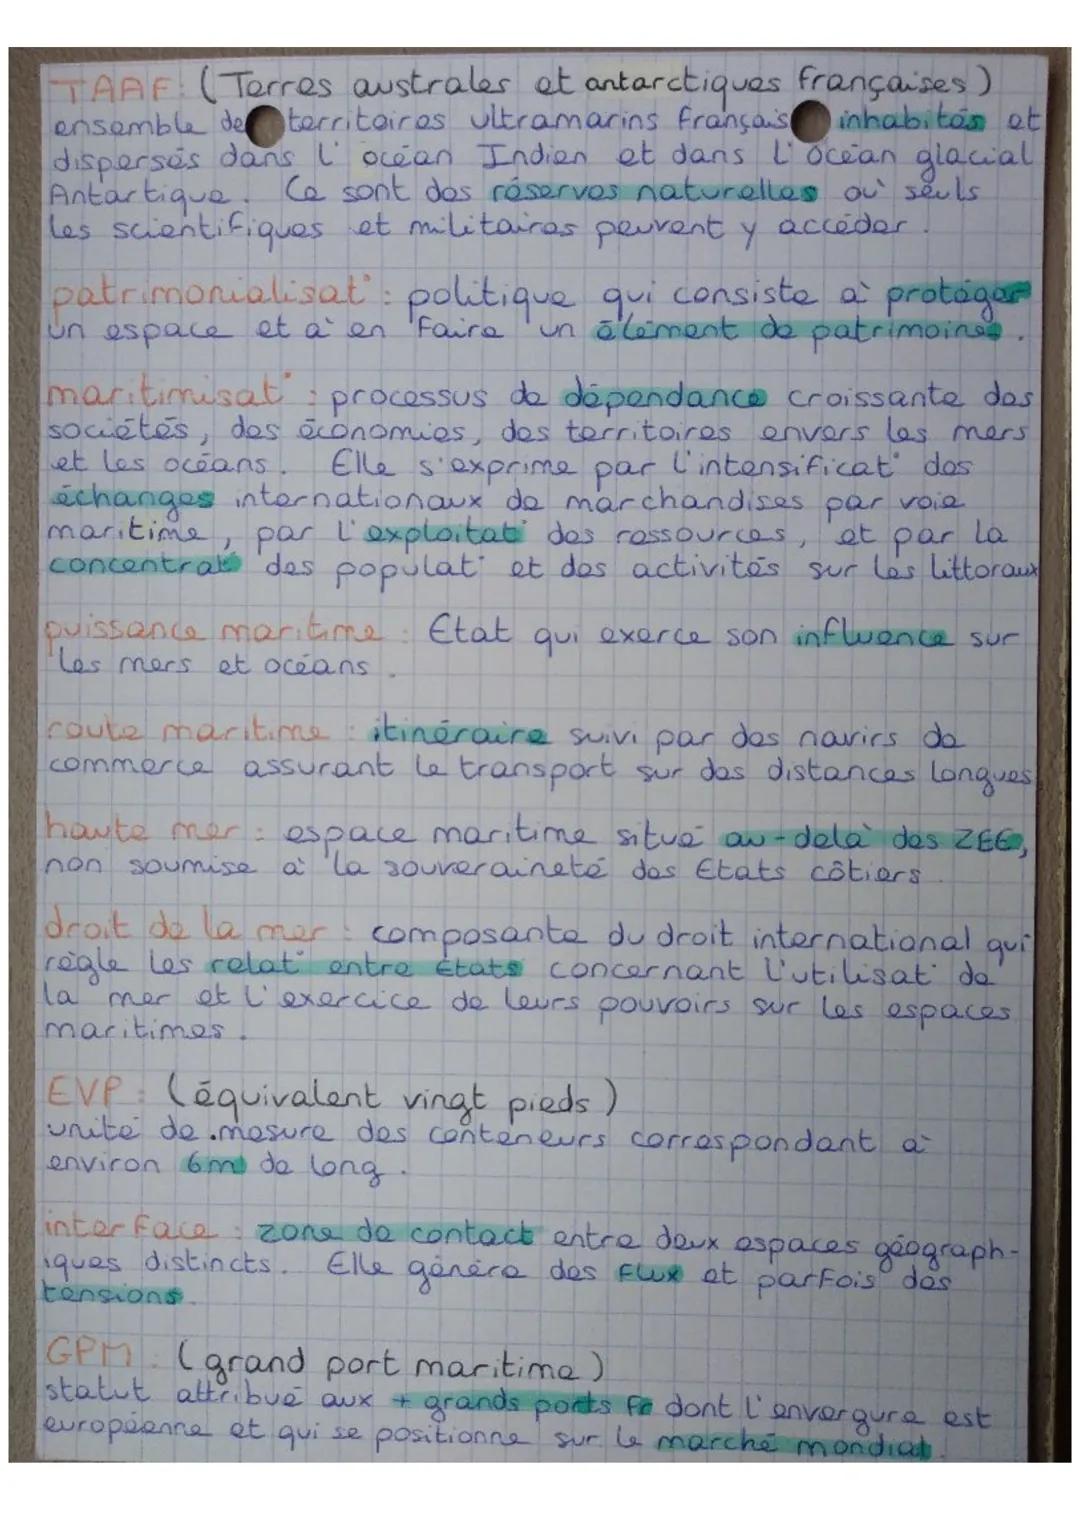 TAAF : (Terres australes et antarctiques françaises)
ensemble de territoires ultramarins français inhabités et
dispersés dans l'océan Indien et dans l'océan glacial
Antartique. Ce sont des réserves naturelles où seuls
les scientifiques et militaires peuvent y accéder.
patrimonialisat° : politique qui consiste à protéger
un espace et à en faire un élément de patrimoines.
maritimisat° : processus de dépendance croissante des
sociétés, des économies, des territoires envers les mers
et les océans. Elle s'exprime par l'intensificat° des
échanges internationaux de marchandises par voie
maritime, par l'exploitat° des ressources, et par la
concentrat° des populat° et des activités sur les littoraux
puissance maritime : Etat qui exerce son influence sur
les mers et océans.
route maritime : itinéraire suivi par des navirs de
commerce assurant le transport sur des distances longues
haute mer : espace maritime situé au-delà des ZEE,
non soumise à la souveraineté des Etats côtiers.
droit de la mer : composante du droit international qui
règle les relat° entre Etats concernant l'utilisat° de
la mer et l'exercice de leurs pouvoirs sur les espaces
maritimes.
EVP : (équivalent vingt pieds)
unité de mesure des conteneurs correspondant à
environ 6m de long.
interface : zone de contact entre deux espaces géograph-
iques distincts. Elle génère des flux et parfois des
tensions.
GPM : (grand port maritime)
statut attribué aux + grands ports fr dont l'envergure est
européenne et qui se positionne sur le marché mondial.